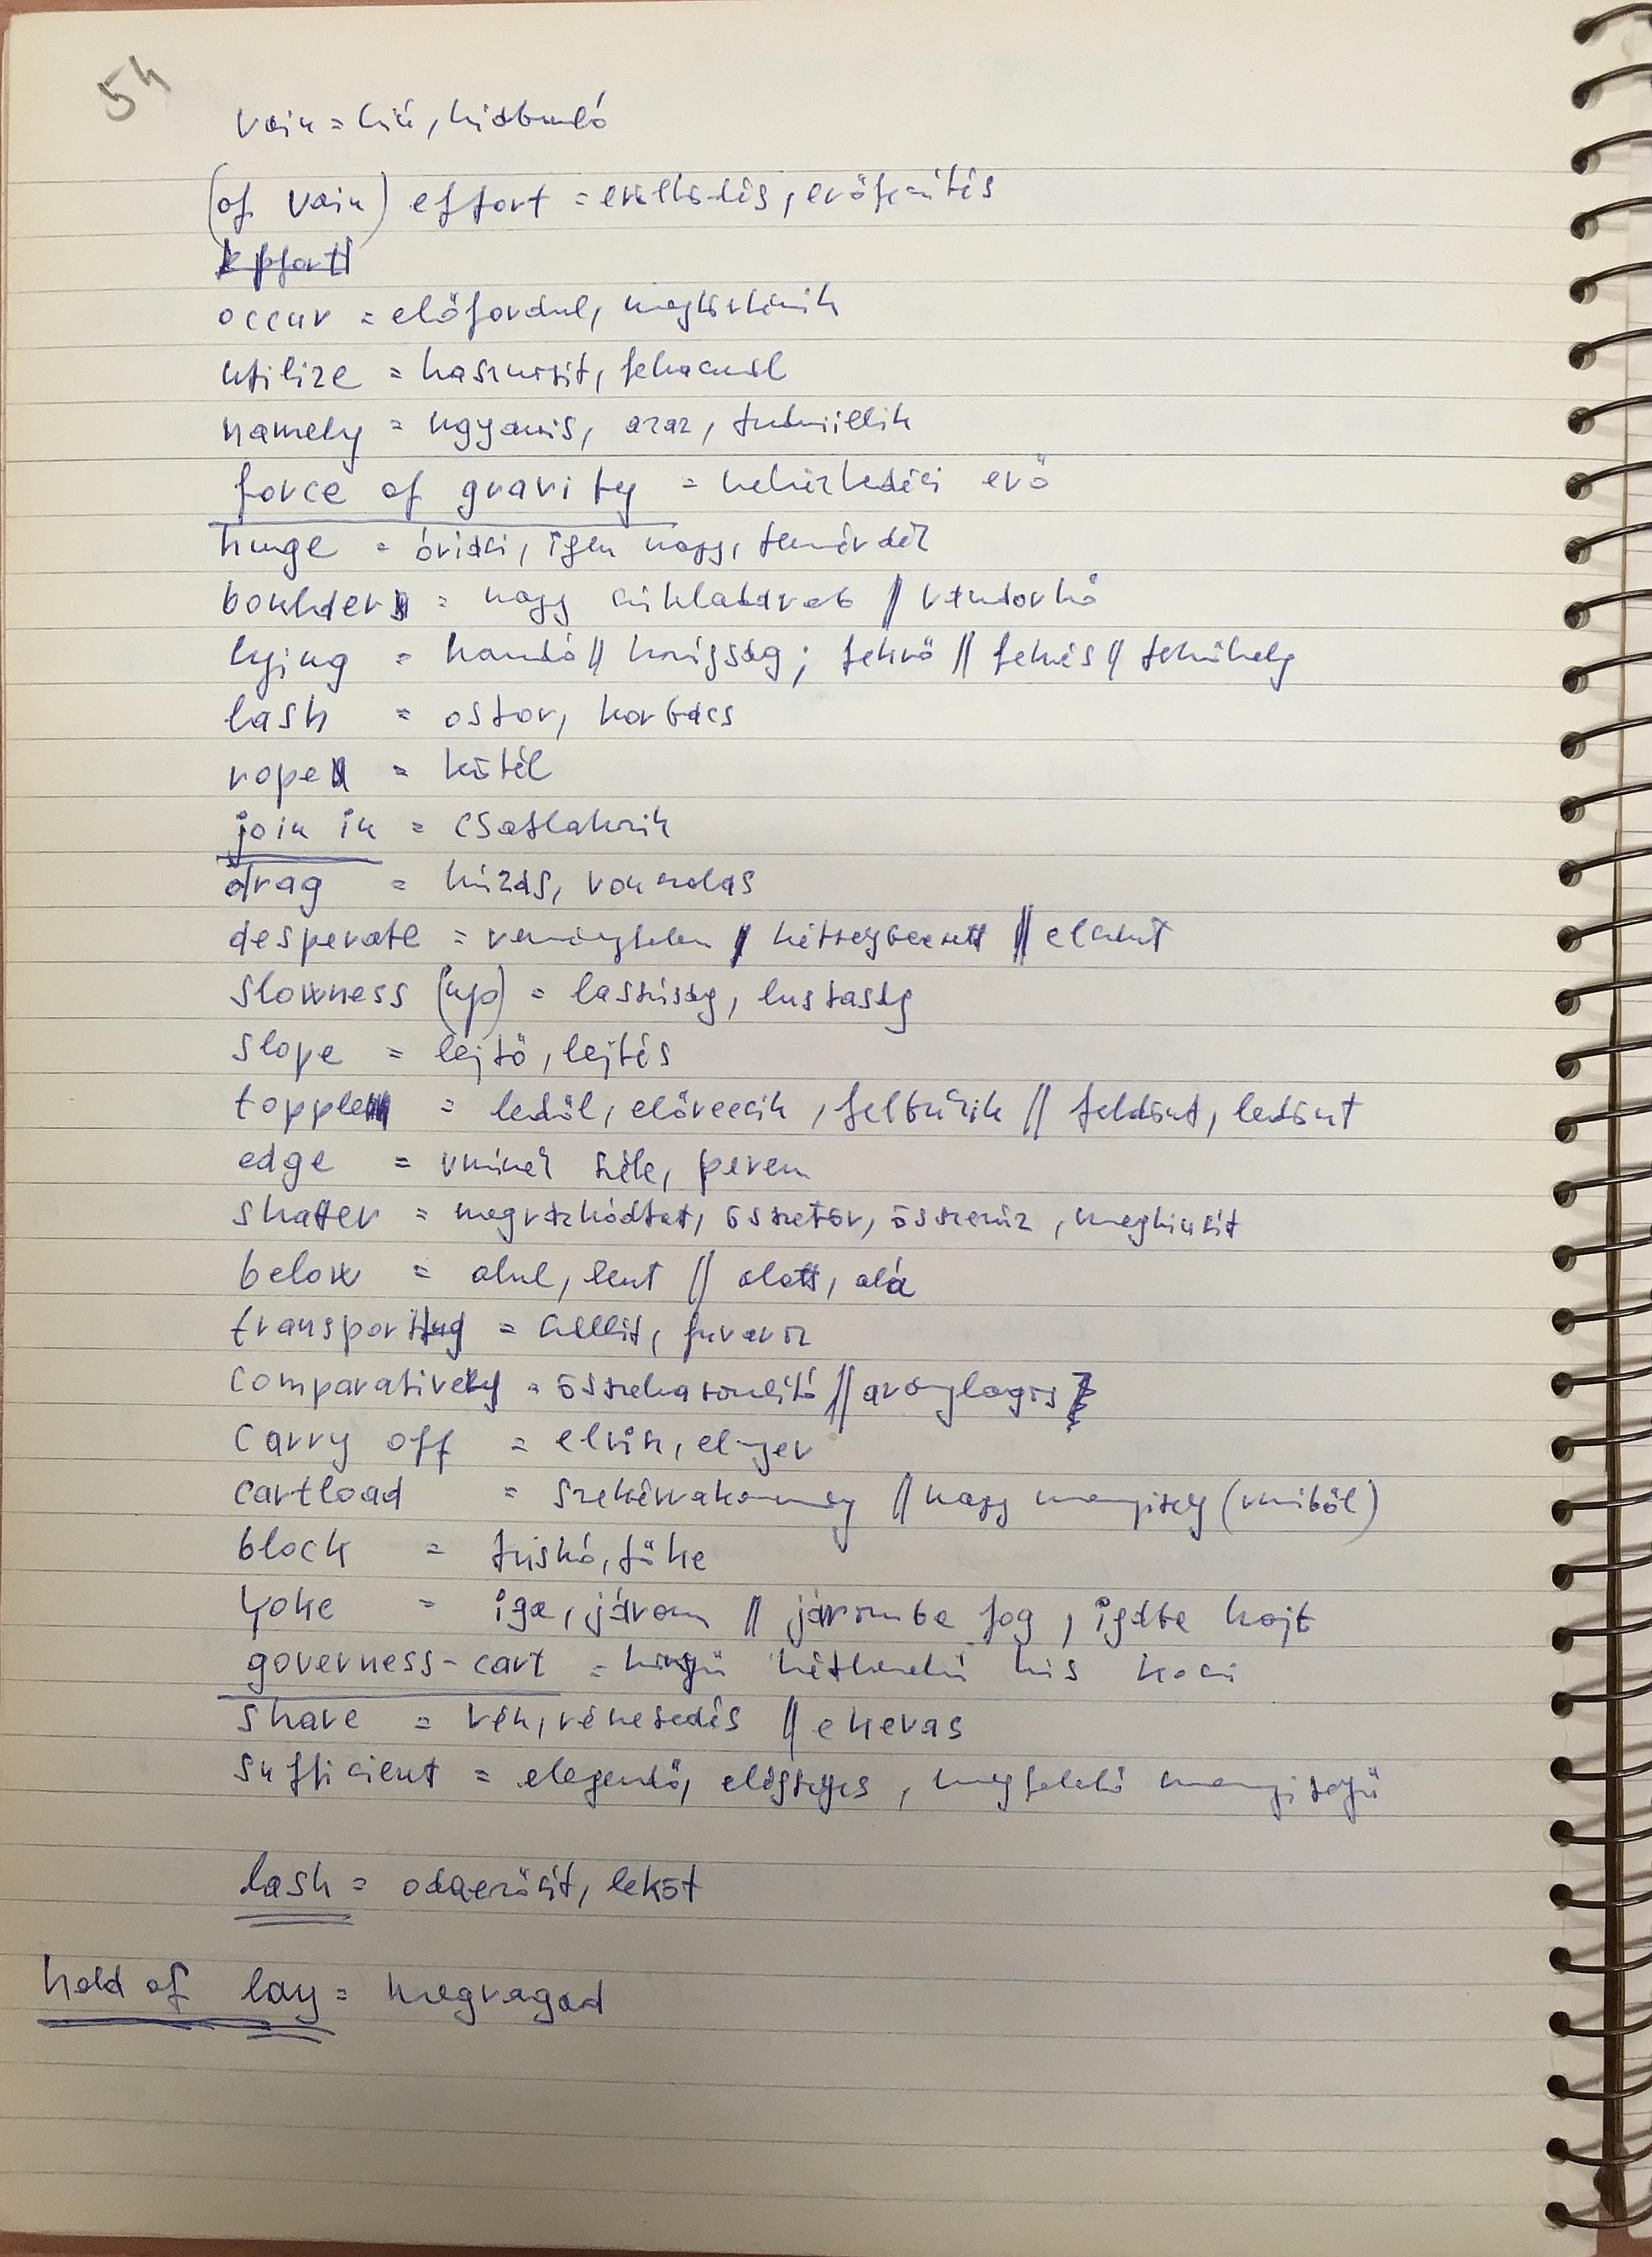 54
vain = hiú, hiábavaló
(of vain) effort = erőlködés, erőfeszítés
occur = előfordul, megtörténik
utilize = hasznosit, felhasznál
namely = ugyanis, azaz, tudniillik
force of gravity = nehézkedési erő
huge = óriási, igen nagy, temérdek
boulder = nagy sziklabdarab // vándorkő
lying = hazudó // hazugság; fekvő // fekvés // fekvőhely
lash = ostor, korbács
rope = kötél
join in = csatlakozik
drag = húzás, vonszolás
desperate = reménytelen / kétségbeesett // elszánt
slowness (up) = lassúság, lustaság
slope = lejtő, lejtés
topple = ledől, előreesik, felbukik // feldönt, ledönt
edge = vminek széle, perem
shatter = megrázkódtat, összetör, összezúz, meghiusít
below = alul, lent // alatt, alá
transport = szállít, fuvaroz
comparative = összehasonlító // aránylagos
carry off = elvisz, elnyer
cartload = szekérrakomány // nagy mennyiség (vmiből)
block = tuskó, tőke
yoke = iga, járom // járomba fog, igába hajt
governess-cart = könnyű kétkerekű kis kocsi
share = rész, részesedés // ekevas
sufficient = elegendő, elégséges, megfelelő mennyiségű
lash = odaerősít, leköt
hold of lay = megragad